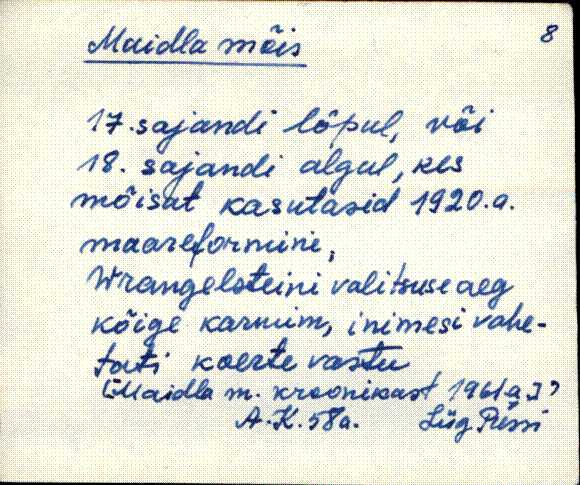 8
Maidla mõis
17. sajandi lõpul, või
18. sajandi algul, kes
mõisat kasutasid 1920.a.
maareformini,
Wrangelsteini valitsuse aeg
kõige karmim, inimesi vahe-
tati koerte vastu
[Maidla m. kroonikast 1961a.]
A.K. 58a. Lüg Püssi